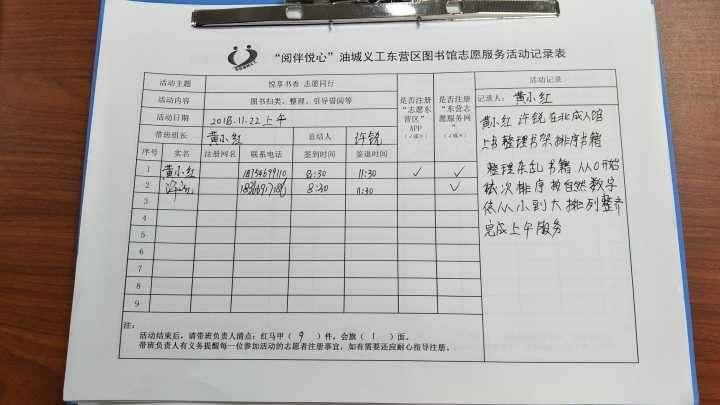 “阅伴悦心”油城义工东营区图书馆志愿服务活动记录表
活动主题 悦享书香 志愿同行 是否注册“志愿东营区”APP（√或×） 是否注册“东营志愿服务网”（√或×） 活动记录
活动内容 图书归类、整理、引导借阅等
活动日期 2018.11.22上午
带班组长 黄小红 总结人 许锐
序号 实名 注册网名 联系电话 签到时间 签退时间
1 黄小红 8:30 11:30 √ √
2 许锐 8:30 11:30 √
3
4
5
6
7
8
9
记录人：黄小红
黄小红 许锐在北成人馆
上书整理书架排序书籍
整理杂乱书籍 从0开始
依次排序 按自然数字
依从小到大排列整齐
完成上午服务
注：
活动结束后，请带班负责人清点：红马甲（9）件，会旗（1）面。
带班负责人有义务提醒每一位参加活动的志愿者注册事宜，如有需要还应耐心指导注册。